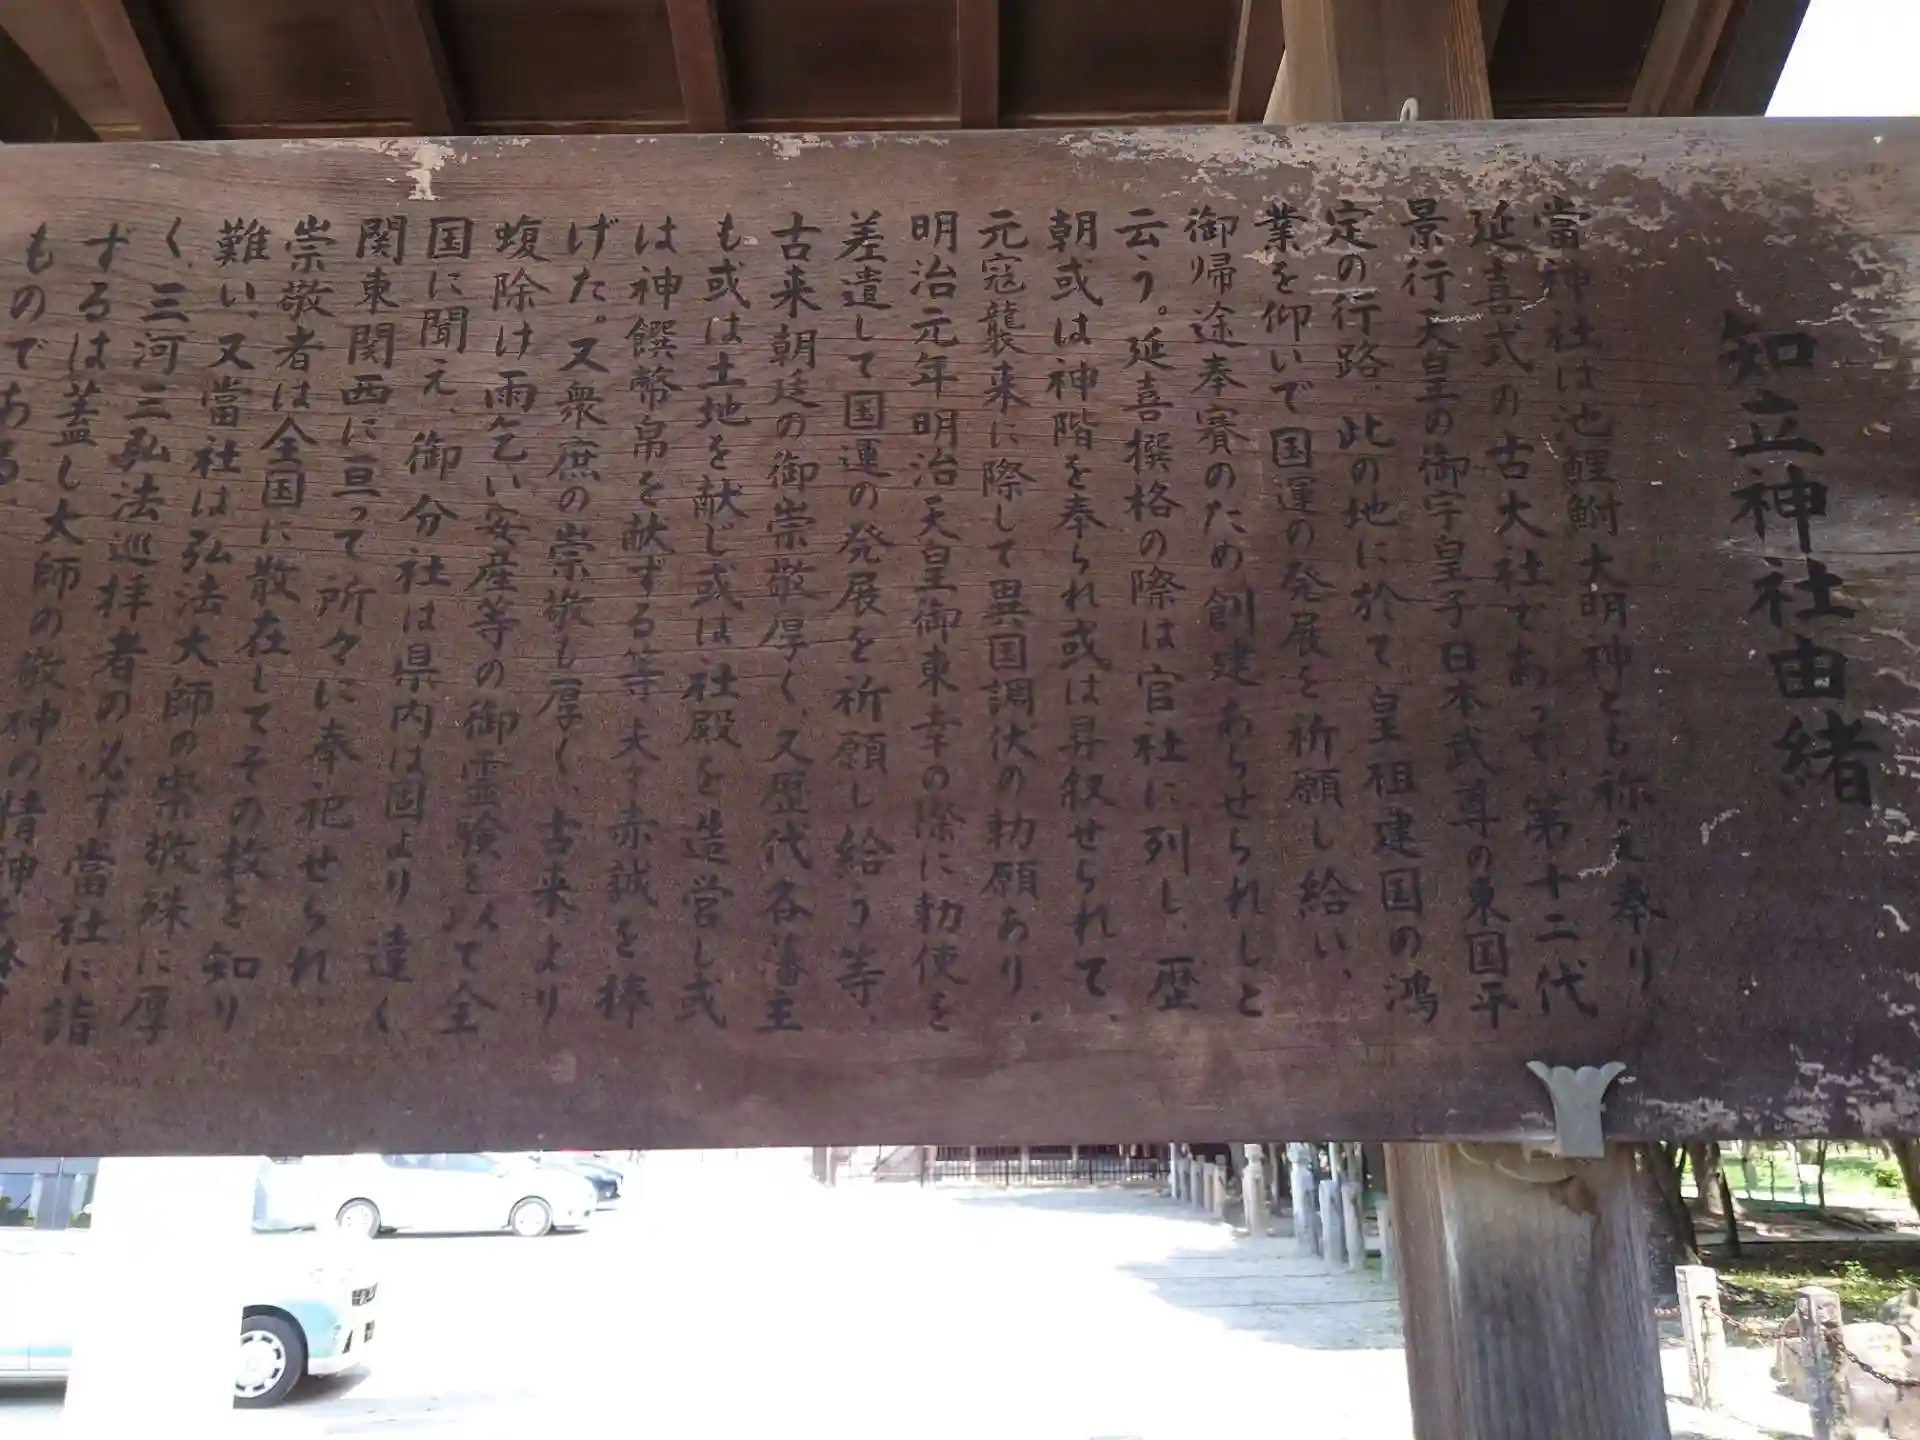 知立神社由緒
當神社は池鯉鮒大明神とも称え奉り、
延喜式の古大社であって、第十二代
景行天皇の御宇皇子日本武尊の東国平
定の行路、此の地に於て皇祖建国の鴻
業を仰いで国運の発展を祈願し給い、
御帰途奉賽のため創建あらせられしと
云う。延喜撰格の際は官社に列し、歴
朝或は神階を奉られ或は昇叙せられて、
元寇襲来に際して異国調伏の勅願あり、
明治元年明治天皇御東幸の際に勅使を
差遣して国運の発展を祈願し給う等、
古来朝廷の御崇敬厚く、又歴代各藩主
も或は土地を献じ或は社殿を造営し或
は神饌幣帛を献ずる等夫々赤誠を捧
げた。又衆庶の崇敬も厚く、古来より
蝮除け雨乞い安産等の御霊験を以て全
国に聞え、御分社は県内は固より遠く
関東関西に亘って所々に奉祀せられ、
崇敬者は全国に散在してその数を知り
難い、又當社は弘法大師の崇敬殊に厚
く、三河三弘法巡拝者の必ず當社に詣
ずるは蓋し大師の敬神の精神を
ものである、